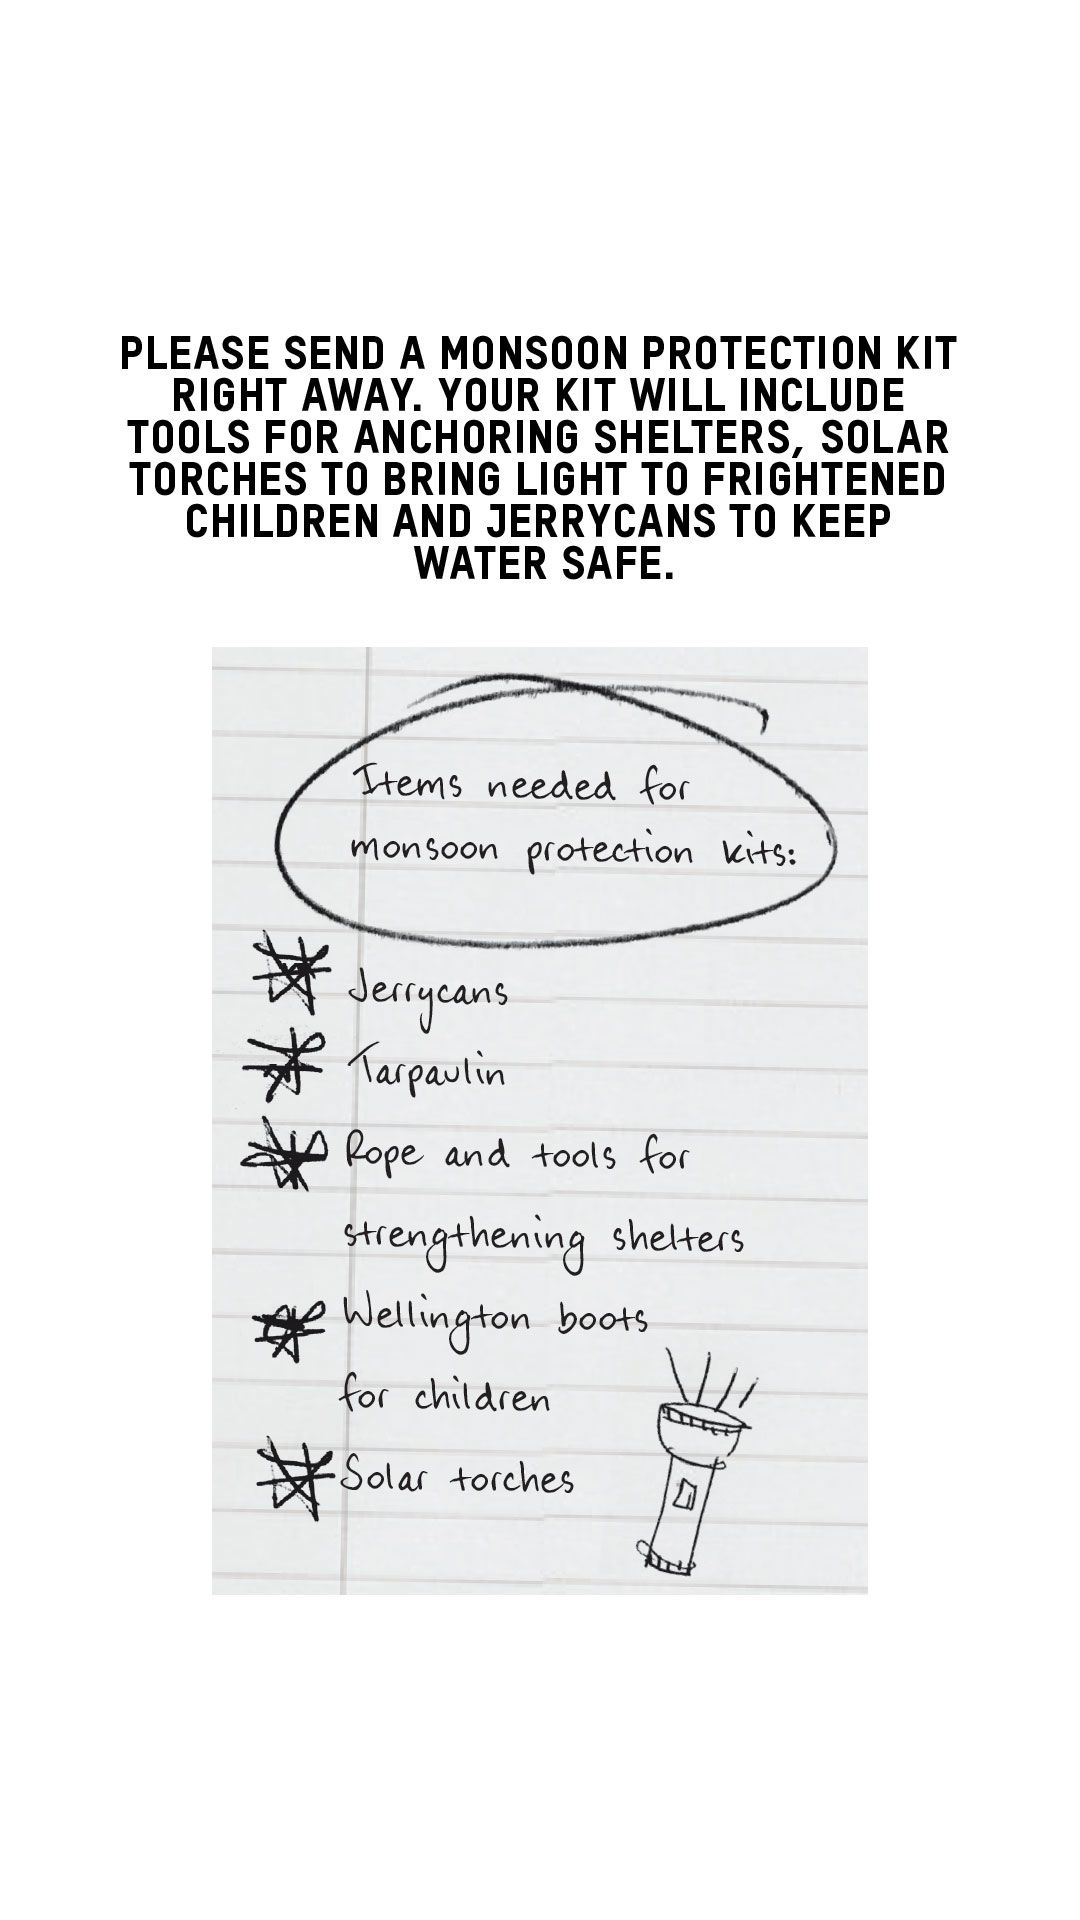 PLEASE SEND A MONSOON PROTECTION KIT
RIGHT AWAY. YOUR KIT WILL INCLUDE
TOOLS FOR ANCHORING SHELTERS, SOLAR
TORCHES TO BRING LIGHT TO FRIGHTENED
CHILDREN AND JERRYCANS TO KEEP
WATER SAFE.
Items needed for
monsoon protection kits:
Jerrycans
Tarpaulin
Rope and tools for
strengthening shelters
Wellington boots
for children
Solar torches